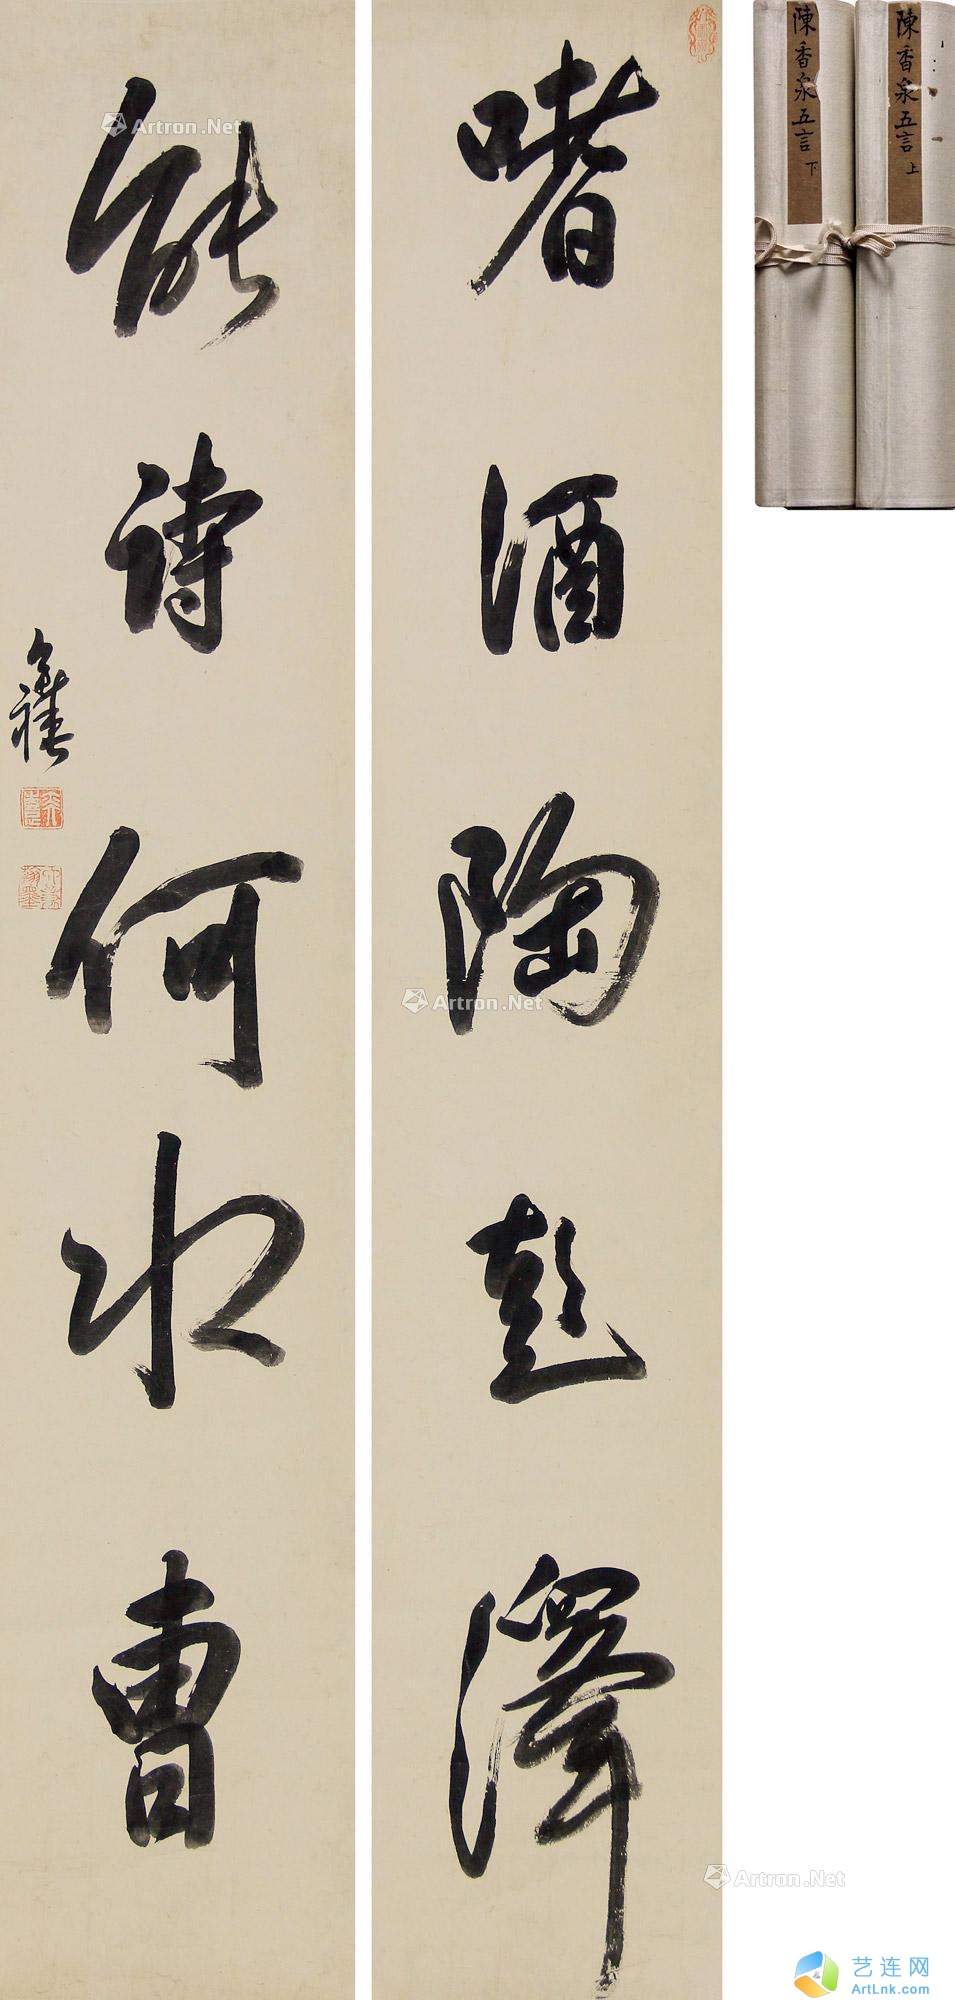 嗜酒陶彭澤
能詩何水曹
奕禧
陳香泉五言 上
陳香泉五言 下
Artron.Net
Artron.Net
Artron.Net
艺连网
ArtLnk.com